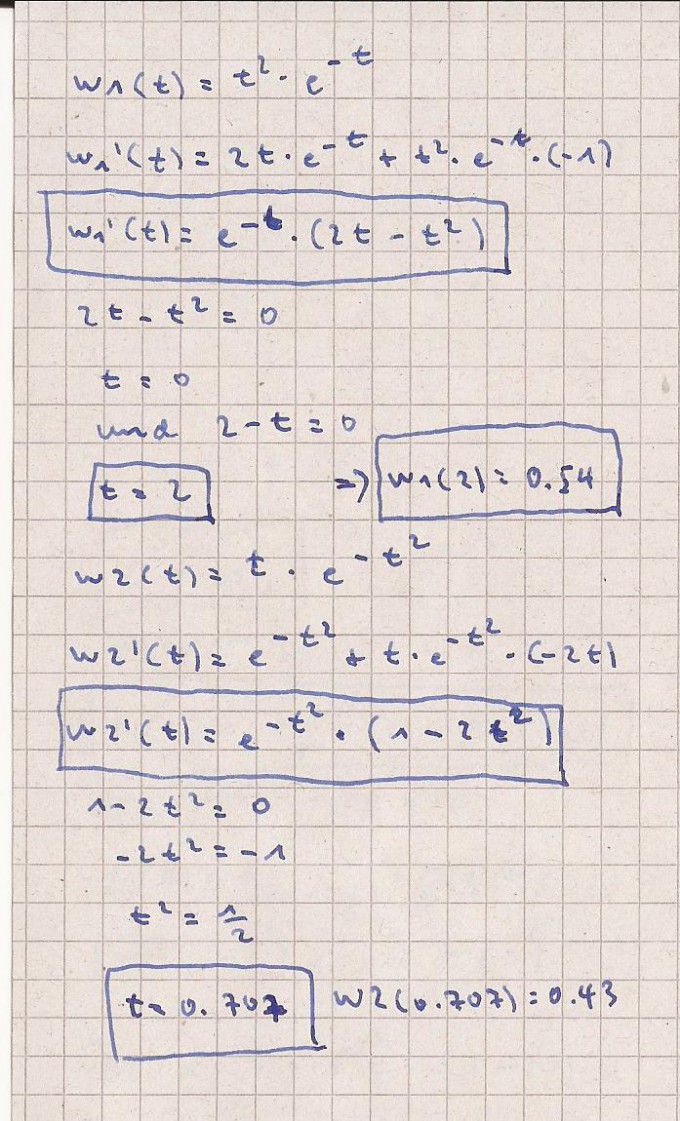 w1(t) = t² · e^(-t)
w1'(t) = 2t · e^(-t) + t² · e^(-t) · (-1)
w1'(t) = e^(-t) · (2t - t²)
2t - t² = 0
t = 0
und 2 - t = 0
t = 2 => w1(2) = 0.54
w2(t) = t · e^(-t²)
w2'(t) = e^(-t²) + t · e^(-t²) · (-2t)
w2'(t) = e^(-t²) · (1 - 2t²)
1 - 2t² = 0
-2t² = -1
t² = 1/2
t = 0.707 w2(0.707) = 0.43